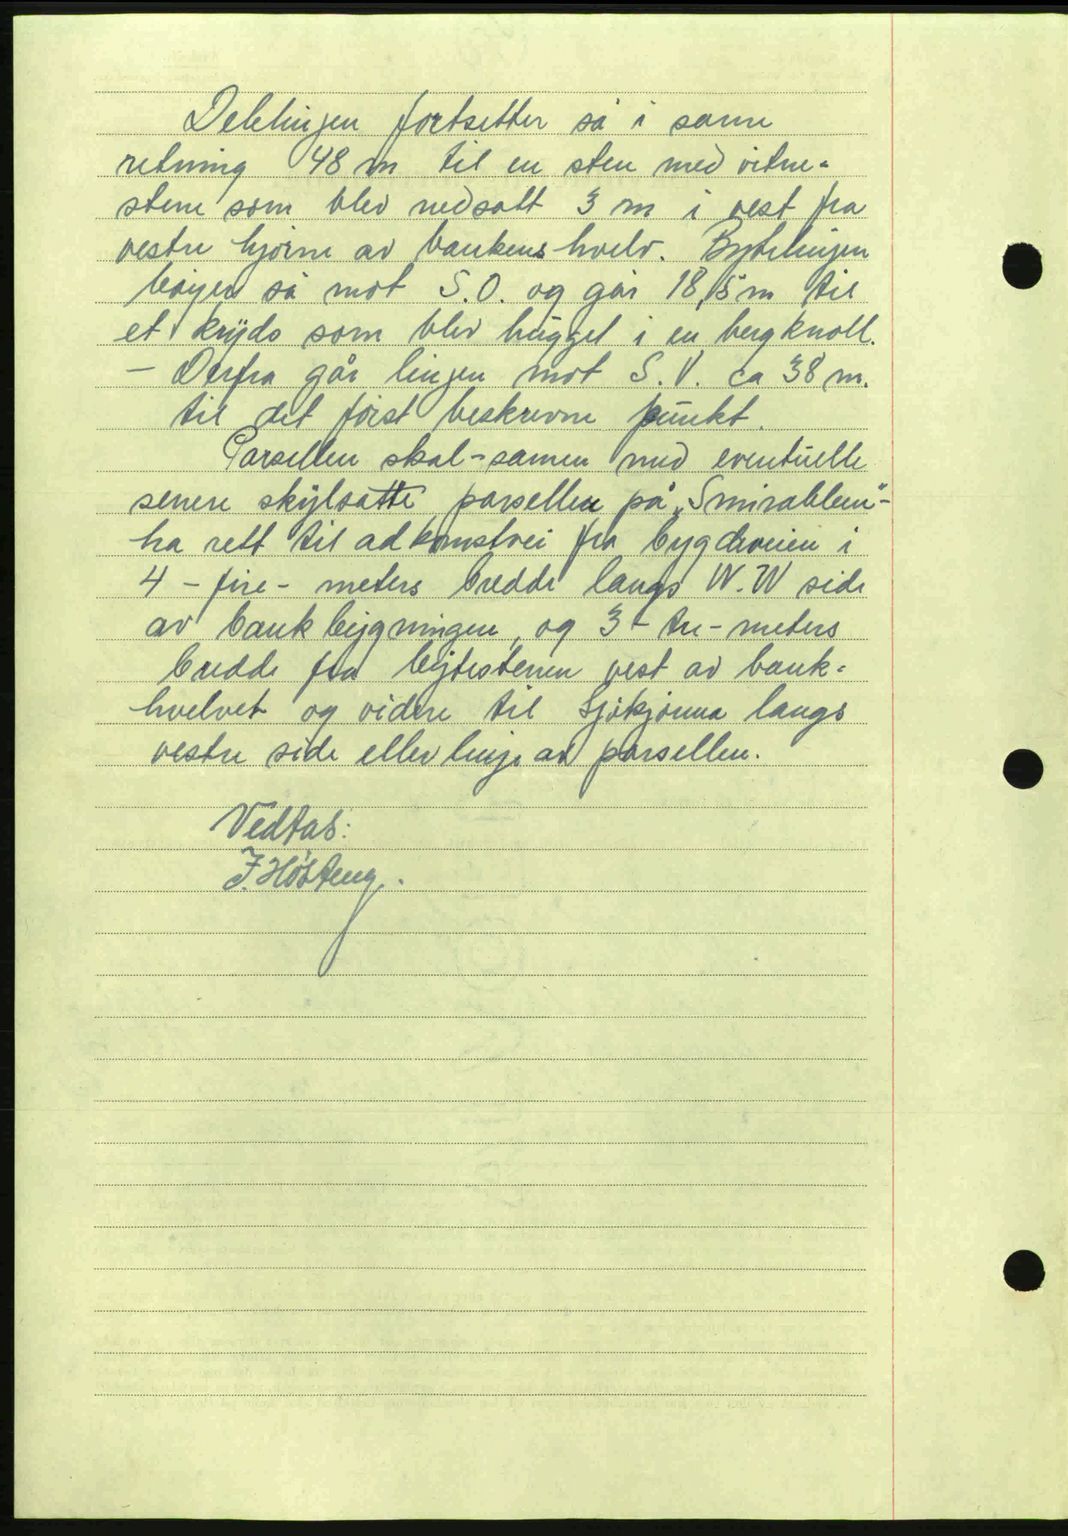 Delelinjen fortsetter så i same
retning 48 m til en sten med vitne-
stene som blev nedsatt 3 m i vest fra
vestre hjörne av bankens hvelv. Bytelinjen
böyer så mot S.O. og går 18,5 m til
et kryds som blev hugget i en bergknoll.
— Derfra går linjen mot S.V. ca 38 m.
til det først beskrevne punkt.
Parsellen skal - samen med eventuelle
senere skyldsatte parseller på „Smirablem" -
ha rett til adkomstvei fra bygdeveien i
4 - fire - meters bredde langs N.W side
av bankbygningen, og 3 - tre - meters
bredde fra bytestenen vest av bank-
hvelvet og vidre til Sjökjönna langs
vestre side eller linje av parsellen.
Vedtas:
J. Høsteng.